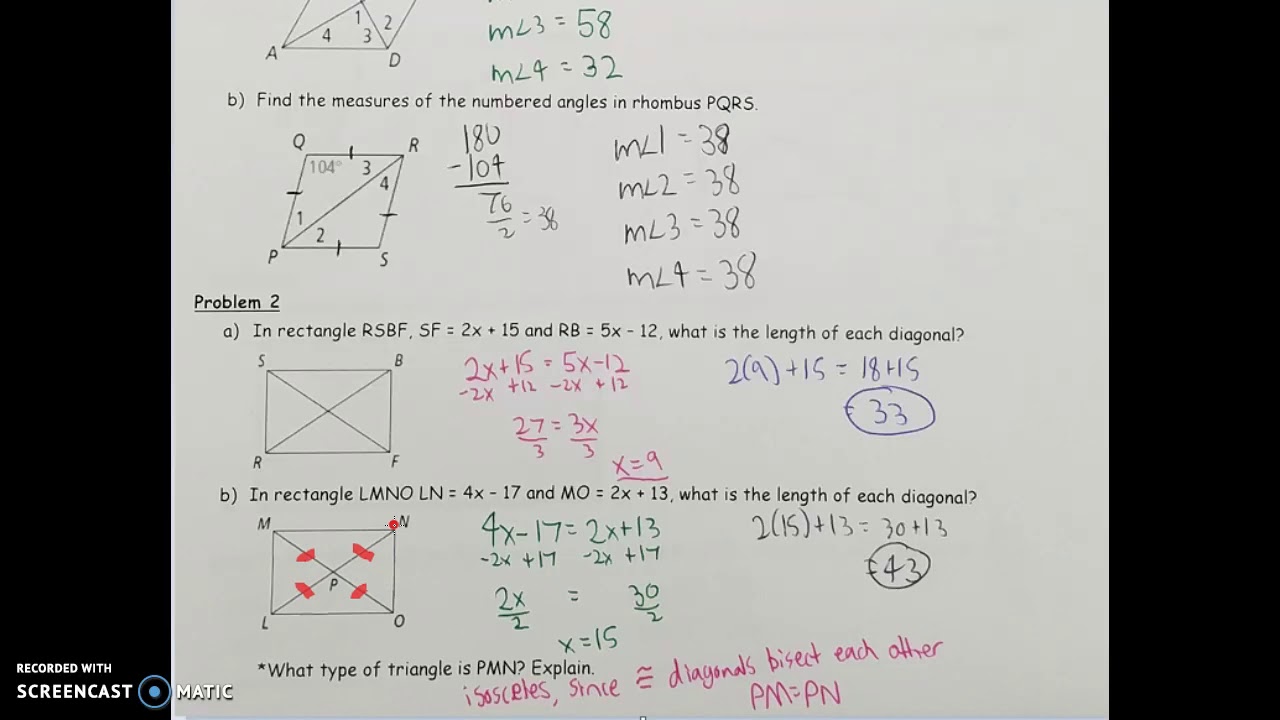 1 2
4 3
A
D
m∠3 = 58
m∠4 = 32
b) Find the measures of the numbered angles in rhombus PQRS.
Q R
104° 3
4
1
2
P S
180
-104
76
2
= 38
m∠1 = 38
m∠2 = 38
m∠3 = 38
m∠4 = 38
Problem 2
a) In rectangle RSBF, SF = 2x + 15 and RB = 5x - 12, what is the length of each diagonal?
S B
R F
2x+15 = 5x-12
-2x +12 -2x +12
27 = 3x
3 3
x=9
2(9)+15 = 18+15
= 33
b) In rectangle LMNO LN = 4x - 17 and MO = 2x + 13, what is the length of each diagonal?
M N
P
L O
4x-17 = 2x+13
-2x +17 -2x +17
2x = 30
2 2
x=15
2(15)+13 = 30+13
= 43
*What type of triangle is PMN? Explain.
isosceles, since ≅ diagonals bisect each other
PM=PN
RECORDED WITH
SCREENCAST MATIC